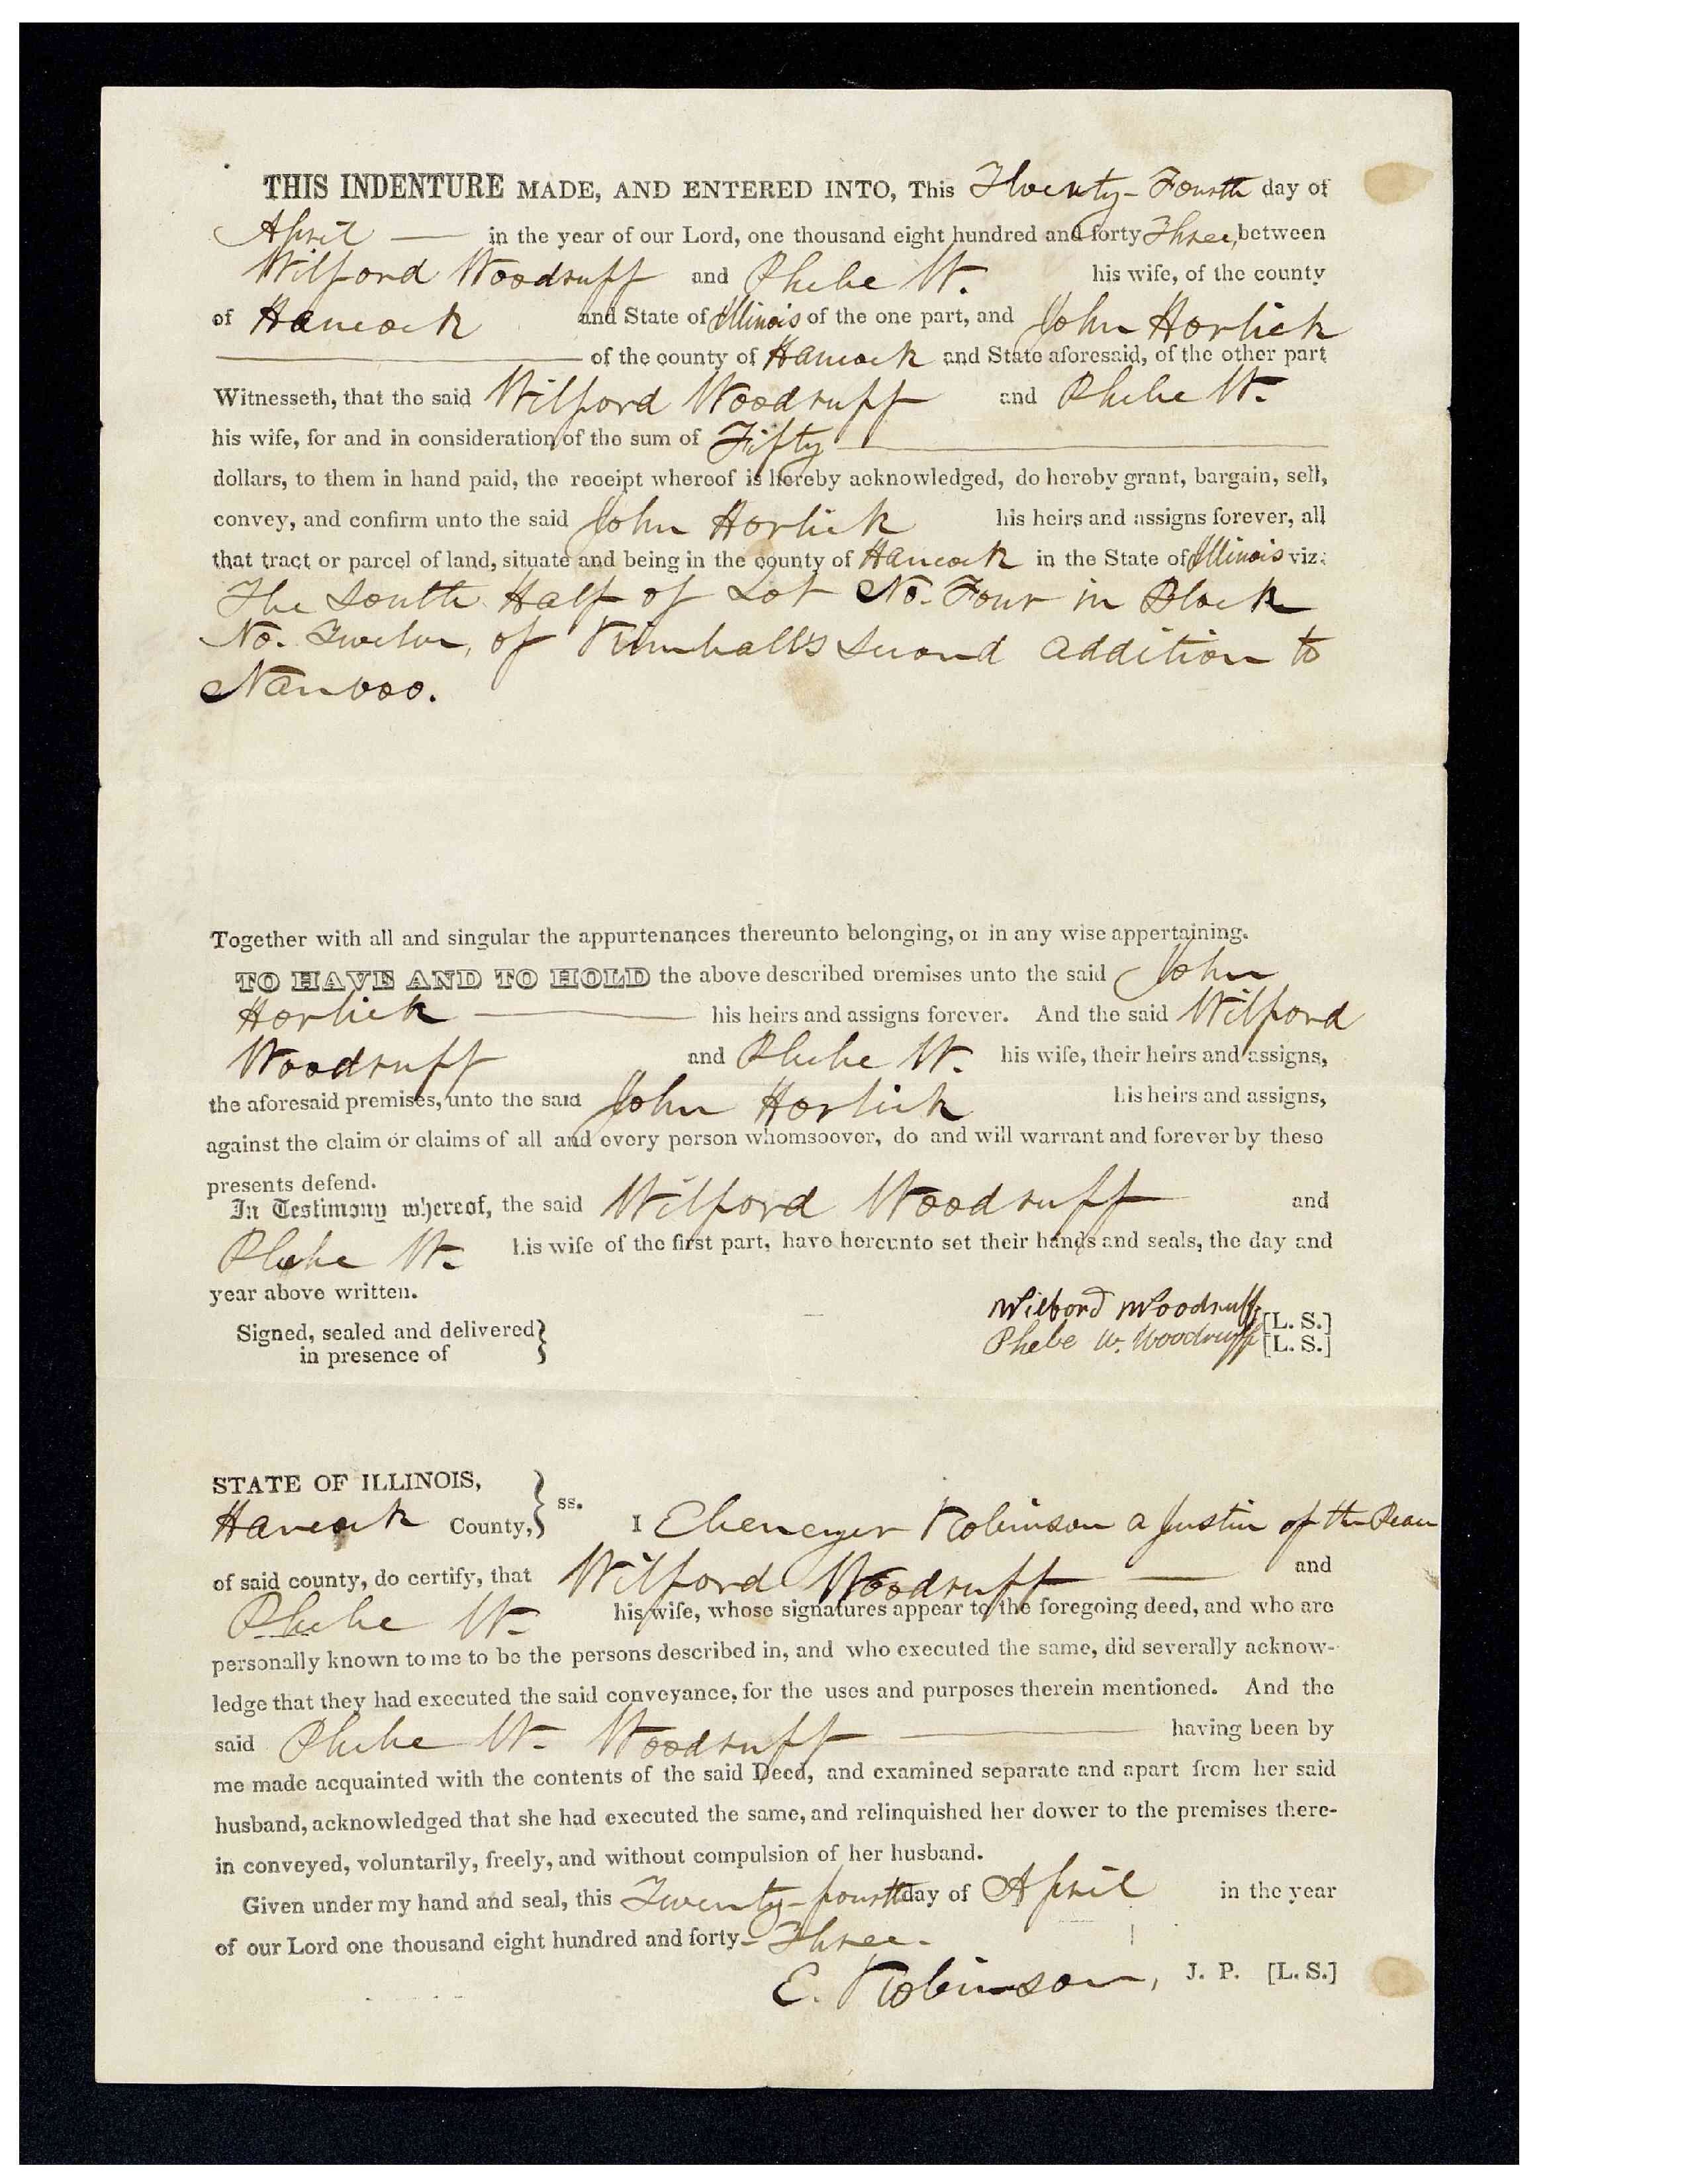 THIS INDENTURE MADE, AND ENTERED INTO, This Twenty-Fourth day of
April in the year of our Lord, one thousand eight hundred and forty Three, between
Wilford Woodruff and Phebe W. his wife, of the county
of Hancock and State of Illinois of the one part, and John Horlick
of the county of Hancock and State aforesaid, of the other part
Witnesseth, that the said Wilford Woodruff and Phebe W.
his wife, for and in consideration of the sum of Fifty
dollars, to them in hand paid, the receipt whereof is hereby acknowledged, do hereby grant, bargain, sell,
convey, and confirm unto the said John Horlick his heirs and assigns forever, all
that tract or parcel of land, situate and being in the county of Hancock in the State of Illinois viz:
The South Half of Lot No. Four in Block
No. Twelve, of Kimball's Second addition to
Nauvoo.
Together with all and singular the appurtenances thereunto belonging, or in any wise appertaining.
TO HAVE AND TO HOLD the above described premises unto the said John
Horlick his heirs and assigns forever. And the said Wilford
Woodruff and Phebe W. his wife, their heirs and assigns,
the aforesaid premises, unto the said John Horlick his heirs and assigns,
against the claim or claims of all and every person whomsoever, do and will warrant and forever by these
presents defend.
In Testimony whereof, the said Wilford Woodruff and
Phebe W. his wife of the first part, have hereunto set their hands and seals, the day and
year above written.
Wilford Woodruff [L. S.]
Signed, sealed and delivered
Phebe W. Woodruff [L. S.]
in presence of
STATE OF ILLINOIS,
Hancock County, } ss. I Ebenezer Robinson a Justice of the Peace
of said county, do certify, that Wilford Woodruff and
Phebe W. his wife, whose signatures appear to the foregoing deed, and who are
personally known to me to be the persons described in, and who executed the same, did severally acknow-
ledge that they had executed the said conveyance, for the uses and purposes therein mentioned. And the
said Phebe W. Woodruff having been by
me made acquainted with the contents of the said Deed, and examined separate and apart from her said
husband, acknowledged that she had executed the same, and relinquished her dower to the premises there-
in conveyed, voluntarily, freely, and without compulsion of her husband.
Given under my hand and seal, this Twenty-fourth day of April in the year
of our Lord one thousand eight hundred and forty-Three.
E. Robinson, J. P. [L. S.]